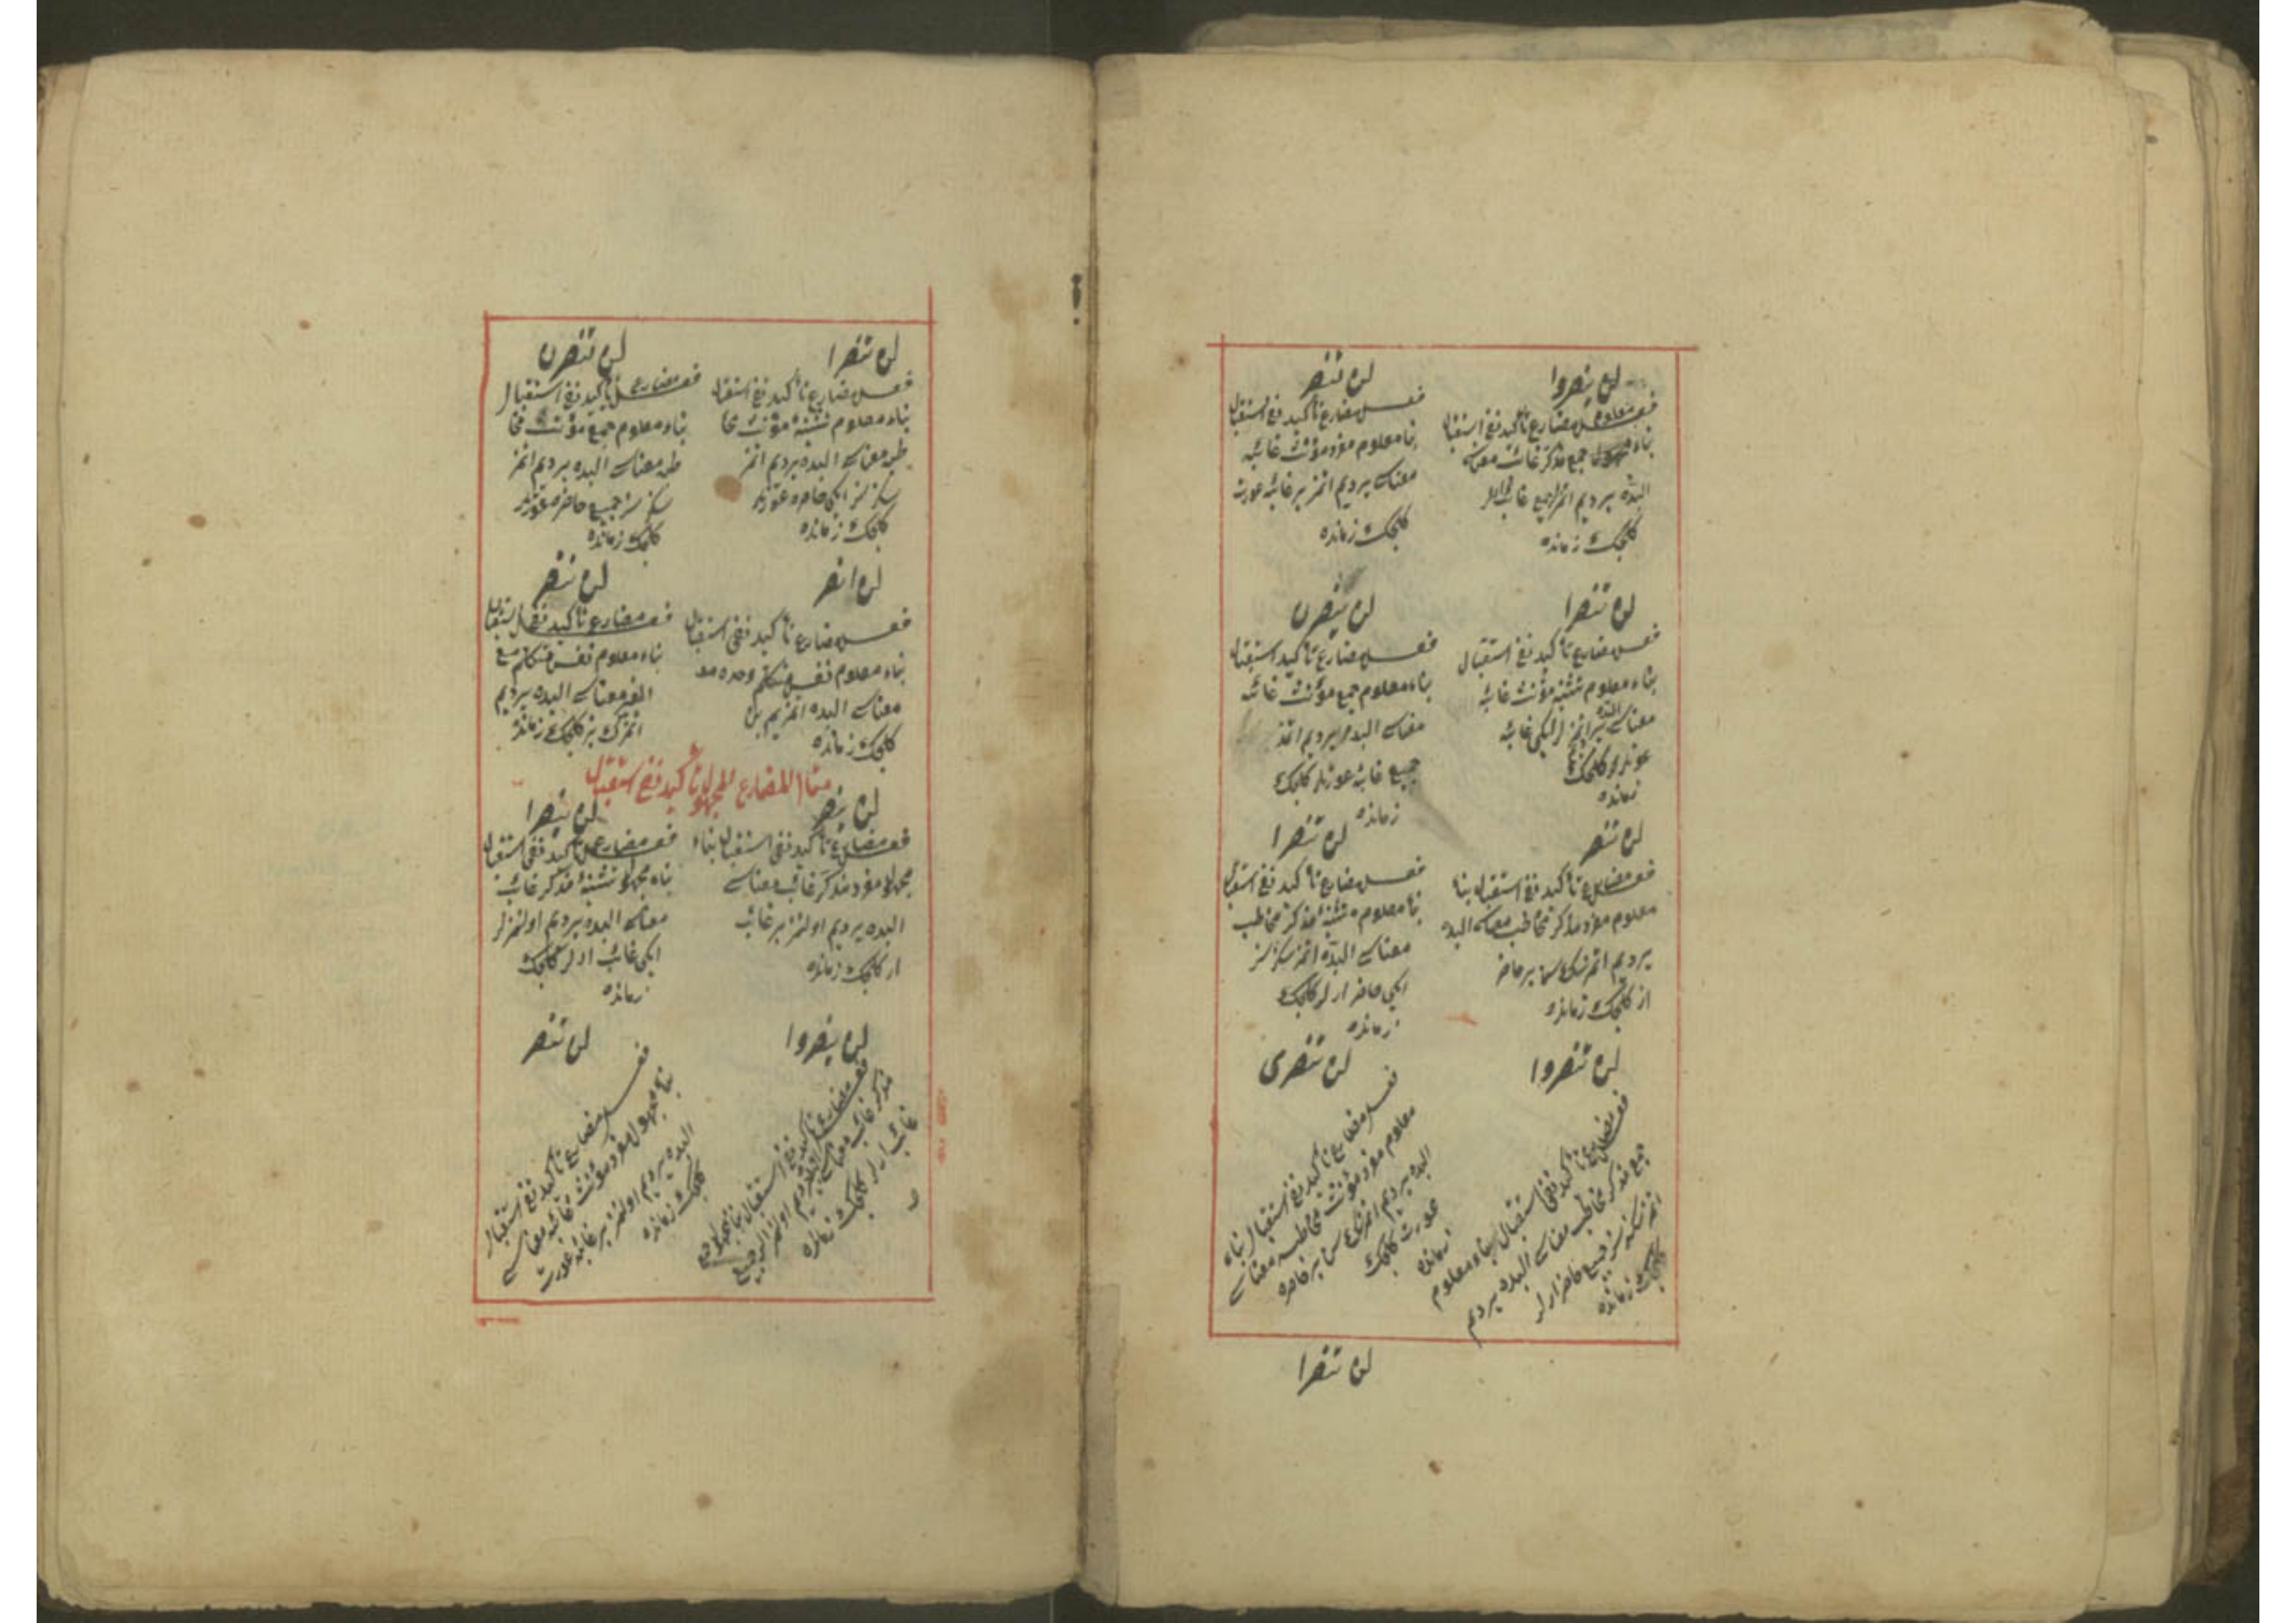 لن ينصروا
فعل مضارع تأكيد نفى استقبال
بناء معلوم جمع مذكر غائب معناسى
البده يرديم اتمزلر جميع غائب ارلر
كلجك زمانده
لن تنصر
فعل مضارع تأكيد نفى استقبال
بنا معلوم مفرد مؤنث غائبه
معناسى يرديم اتمز بر غائبه عورت
كلجك زمانده
لن تنصرا
فعل مضارع تأكيد نفى استقبال
بناء معلوم تثنيۀ مؤنث غائبه
معناسى البده اتمزلر ايكى غائبه
عورتلر كلجك
زمانده
لن ينصرن
فعل مضارع تأكيد استقبال
بناء معلوم جمع مؤنث غائبه
معناسى البده يرديم اتمز
جميع غائبه عورتلر كلجك
زمانده
لن تنصر
فعل مضارع تأكيد نفى استقبال بنا
معلوم مفرد مذكر مخاطب معناسى البده
يرديم اتمزسك سن بر حاضر
ار كلجك زمانده
لن تنصرا
فعل مضارع تأكيد نفى استقبال
بنا معلوم تثنيۀ مذكر مخاطب
معناسى البده اتمزسكز سز
ايكى حاضر ارلر كلجك
زمانده
لن تنصروا
فعل مضارع تأكيد نفى استقبال بناء معلوم
جمع مذكر مخاطب معناسى البده يرديم
اتمزسكز سز جميع حاضر ارلر
كلجك زمانده
لن تنصرى
فعل مضارع تأكيد نفى استقبال بناء
معلوم مفرد مؤنث مخاطبه معناسى
البده يرديم اتمزسك سن بر حاضره
عورت كلجك
زمانده
لن تنصرا
لن تنصرا
فعل مضارع تأكيد نفى استقبال
بناء معلوم تثنيۀ مؤنث مخا
طبه معناسى البده يرديم اتمز
سكز سز ايكى حاضره عورتلر
كلجك زمانده
لن تنصرن
فعل مضارع تأكيد نفى استقبال
بناء معلوم جمع مؤنث مخا
طبه معناسى البده يرديم اتمز
سكز سز جميع حاضره عورتلر
كلجك زمانده
لن انصر
فعل مضارع تأكيد نفى استقبال
بناء معلوم نفس متكلم وحده
معناسى البده اتمزيم بن
كلجك زمانده
لن ننصر
فعل مضارع تأكيد نفى استقبال
بناء معلوم نفس متكلم مع
الغير معناسى البده يرديم
اتمزك بز كلجك زمانده
مثال المضارع المجهول تأكيد نفى استقبال
لن ينصر
فعل مضارع تأكيد نفى استقبال بناء
مجهول مفرد مذكر غائب معناسى
البده يرديم اولنمز بر غائب
ار كلجك زمانده
لن ينصرا
فعل مضارع تأكيد نفى استقبال
بناء مجهول تثنيۀ مذكر غائب
معناسى البده يرديم اولنمزلر
ايكى غائب ارلر كلجك
زمانده
لن ينصروا
فعل مضارع تأكيد نفى استقبال بنا مجهول جمع
مذكر غائب معناسى البده يرديم اولنمزلر جميع
غائب ارلر كلجك زمانده
لن تنصر
فعل مضارع تأكيد نفى استقبال
بنا مجهول مفرد مؤنث غائبه معناسى
البده يرديم اولنمز بر غائبه عورت
كلجك زمانده